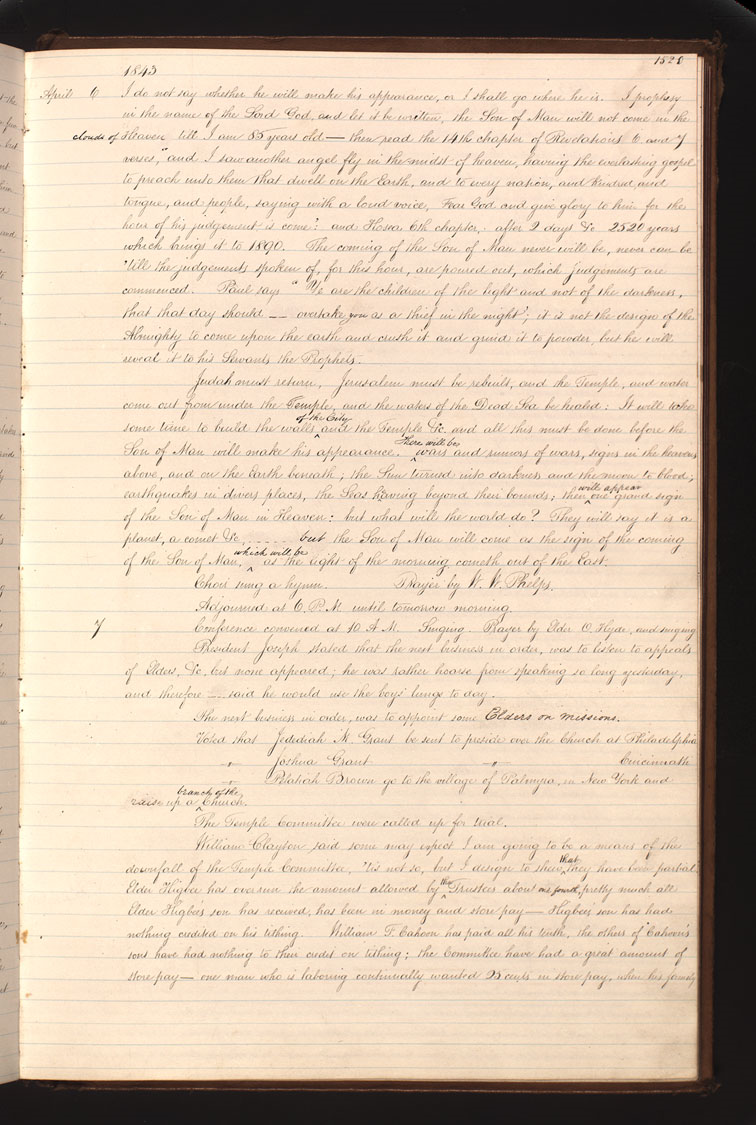 1520
1843
April 6 I do not say whether he will make his appearance, or I shall go where he is. I prophesy
in the name of the Lord God, and let it be written, the Son of Man will not come in the
clouds of Heaven till I am 85 years old — then read the 14th chapter of Revelations 6 and 7
verses, "and I saw another angel fly in the midst of heaven, having the everlasting gospel
to preach unto them that dwell on the Earth, and to every nation, and kindred, and
tongue, and people, saying with a loud voice, Fear God and give glory to him for the
hour of his judgement is come": and Hosea 6th chapter, after 2 days &c 2520 years
which brings it to 1890. The coming of the Son of Man never will be, never can be
'till the judgements spoken of, for this hour, are poured out, which judgements are
commenced. Paul says "Ye are the children of the light and not of the darkness,
that that day should — overtake you as a thief in the night"; it is not the design of the
Almighty to come upon the earth and crush it and grind it to powder, but he will
reveal it to his Servants the Prophets.
Judah must return, Jerusalem must be rebuilt, and the Temple, and water
come out from under the Temple, and the waters of the Dead Sea be healed: It will take
of the City
some time to build the walls ^ and the Temple &c, and all this must be done before the
There will be
Son of Man will make his appearance. ^ wars and rumors of wars, signs in the heavens
above, and on the Earth beneath; the Sun turned into darkness and the moon to blood,
will appear
earthquakes in divers places, the Seas heaving beyond their bounds; then ^ one grand sign
of the Son of Man in Heaven: but what will the world do? They will say it is a
planet, a comet &c, ...... but the Son of Man will come as the sign of the coming
which will be
of the Son of Man, ^ as the light of the morning cometh out of the East.
Choir sung a hymn. Prayer by W. W. Phelps.
Adjourned at 6. P.M. until tomorrow morning.
7 Conference convened at 10 A.M. Singing. Prayer by Elder O. Hyde, and singing
President Joseph stated that the next business in order, was to listen to appeals
of Elders, &c, but none appeared; he was rather hoarse from speaking so long yesterday,
and therefore — said he would use the boys' lungs to day.
The next business in order, was to appoint some Elders on missions.
Voted that Jedediah M. Grant be sent to preside over the Church at Philadelphia
" Joshua Grant " Cincinnati
" Pelatiah Brown go to the village of Palmyra, in New York and
branch of the
raise up a ^ Church.
The Temple Committee were called up for trial.
William Clayton said some may expect I am going to be a means of the
that
downfall of the Temple Committee, 'tis not so, but I design to shew ^ they have been partial.
the
Elder Higbee has overrun the amount allowed by ^ Trustees about one fourth, pretty much all
Elder Higbee's son has received, has been in money and store pay — Higbee's son has had
nothing credited on his tithing. William F. Cahoon has paid all his tenth, the others of Cahoon's
sons have had nothing to their credit on tithing; the Committee have had a great amount of
store pay — one man who is laboring continually wanted 25 cents in store pay, when his family